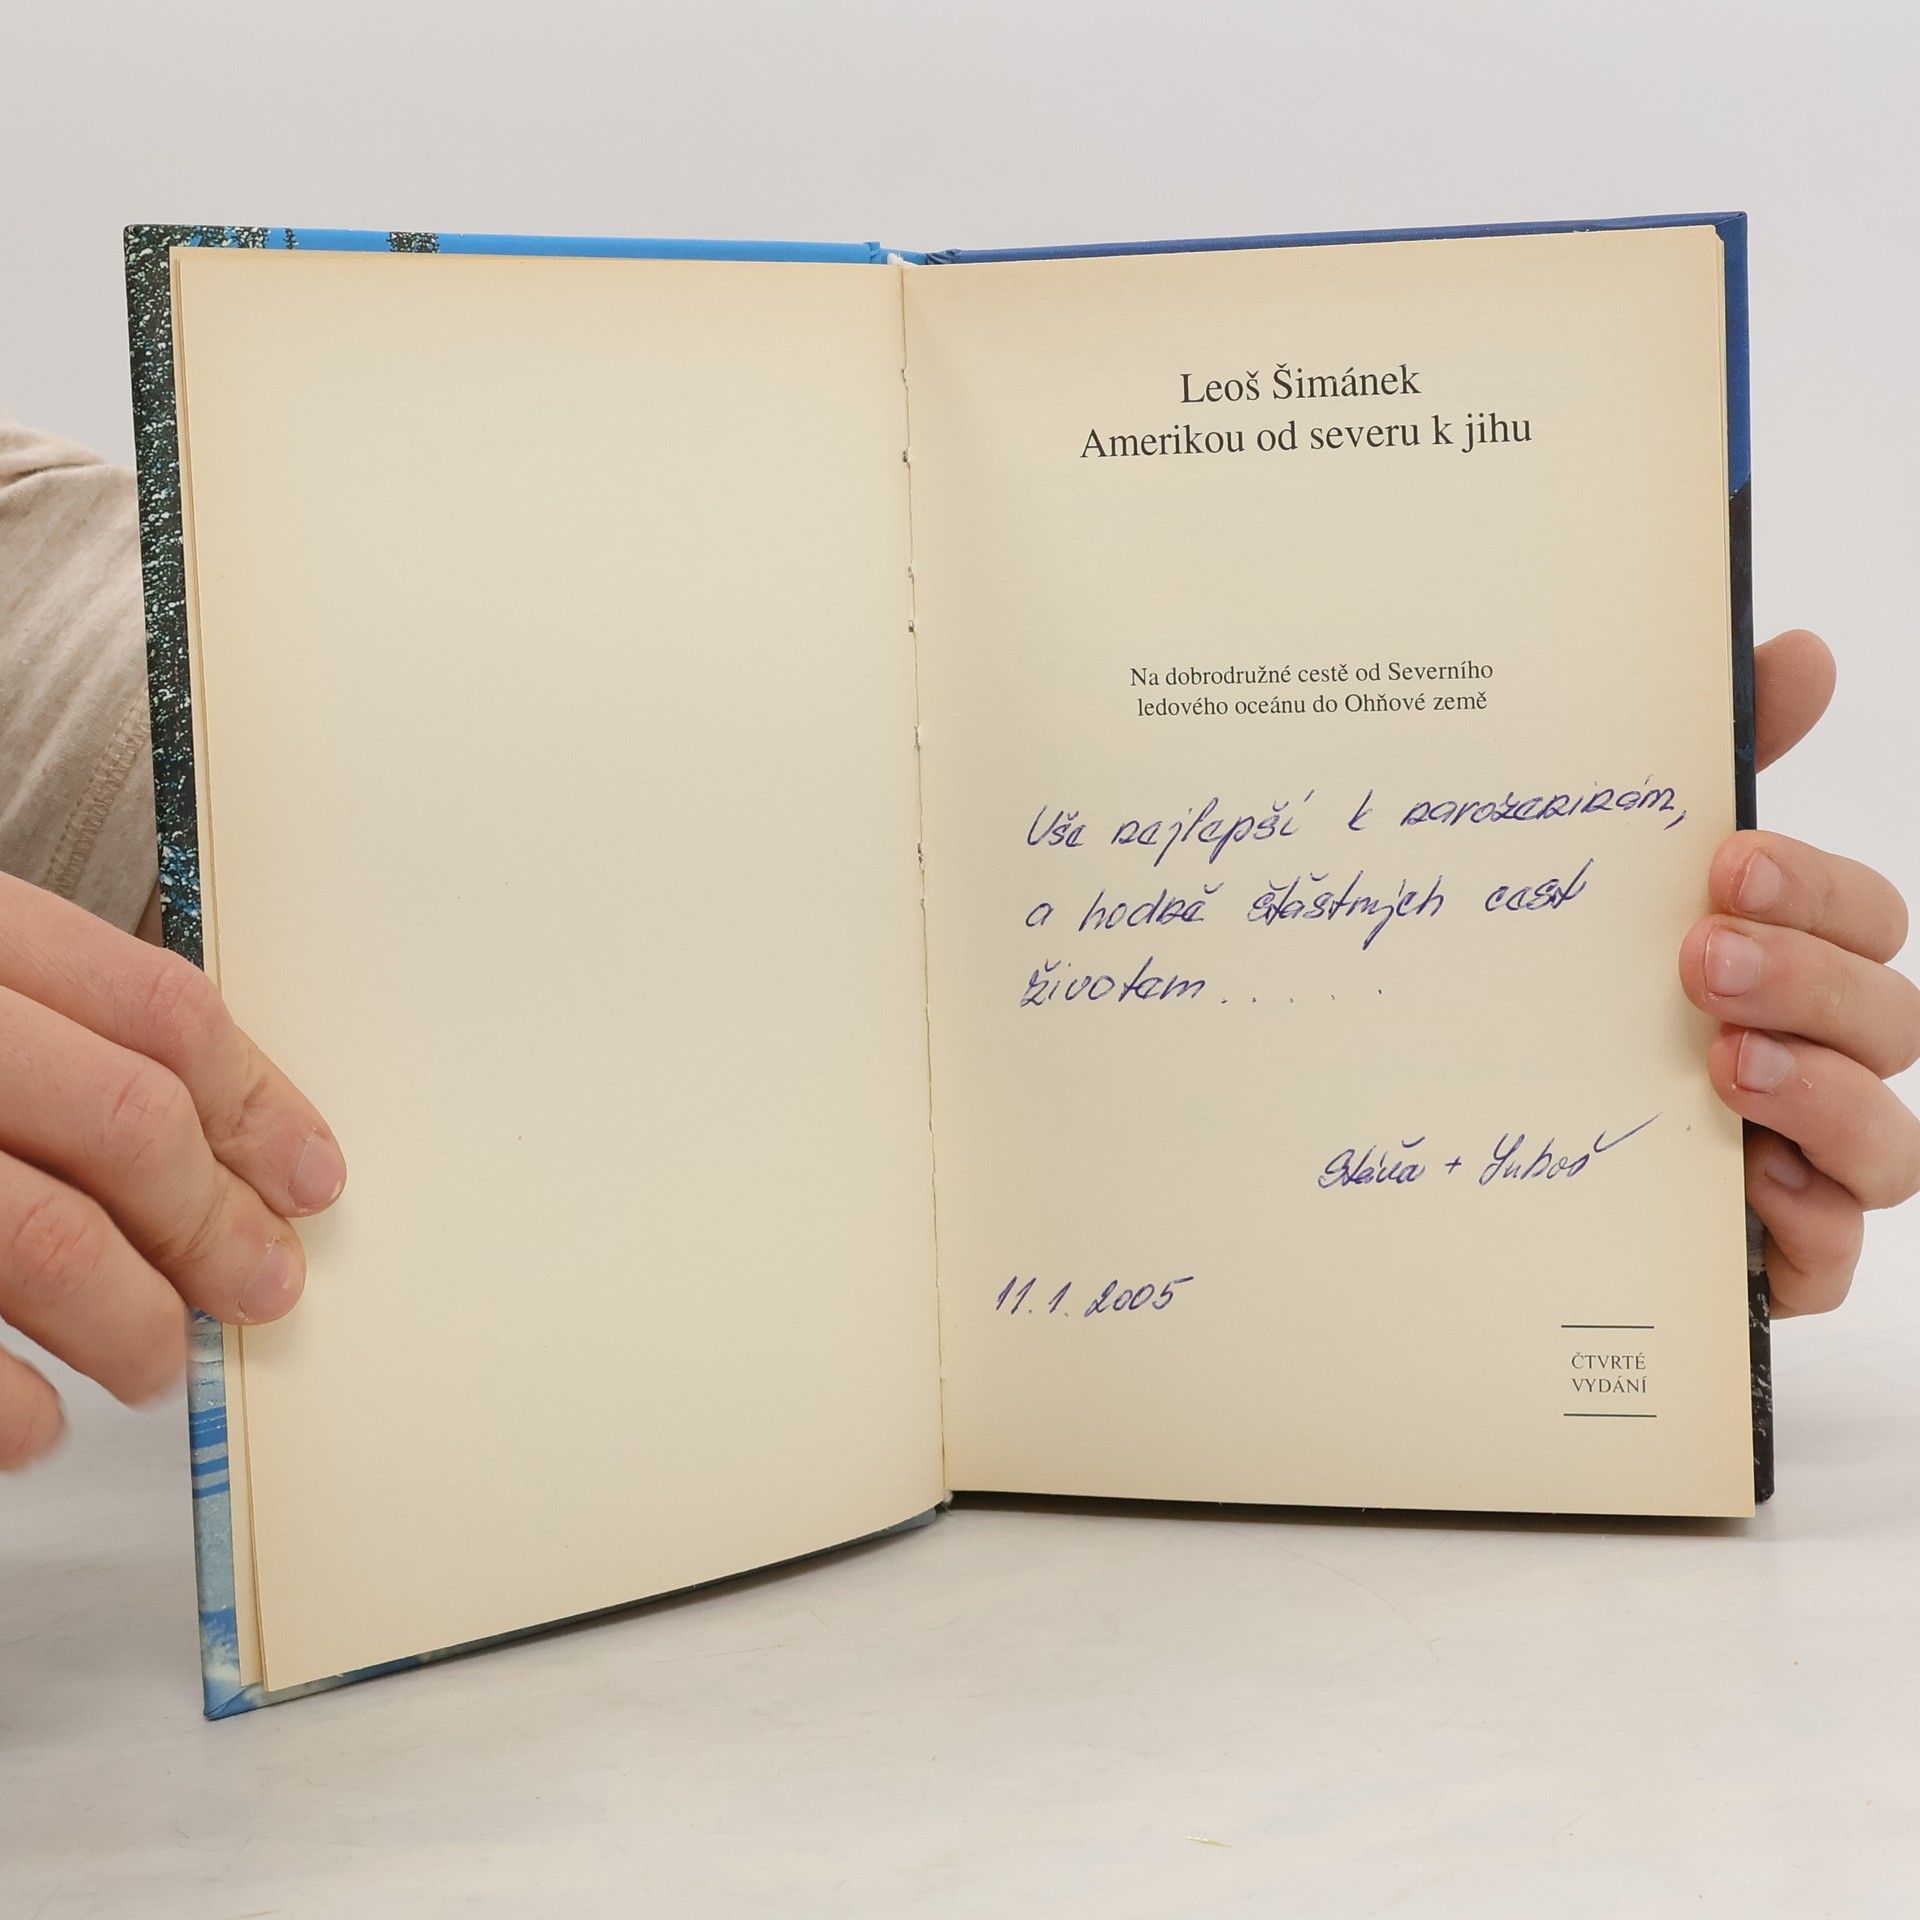 Leoš Šimánek
Amerikou od severu k jihu
Na dobrodružné cestě od Severního
ledového oceánu do Ohňové země
Vše nejlepší k narozeninám,
a hodně šťáštných cest
životem . . . . .
Stáňa + Luboš
11. 1. 2005
ČTVRTÉ
VYDÁNÍ